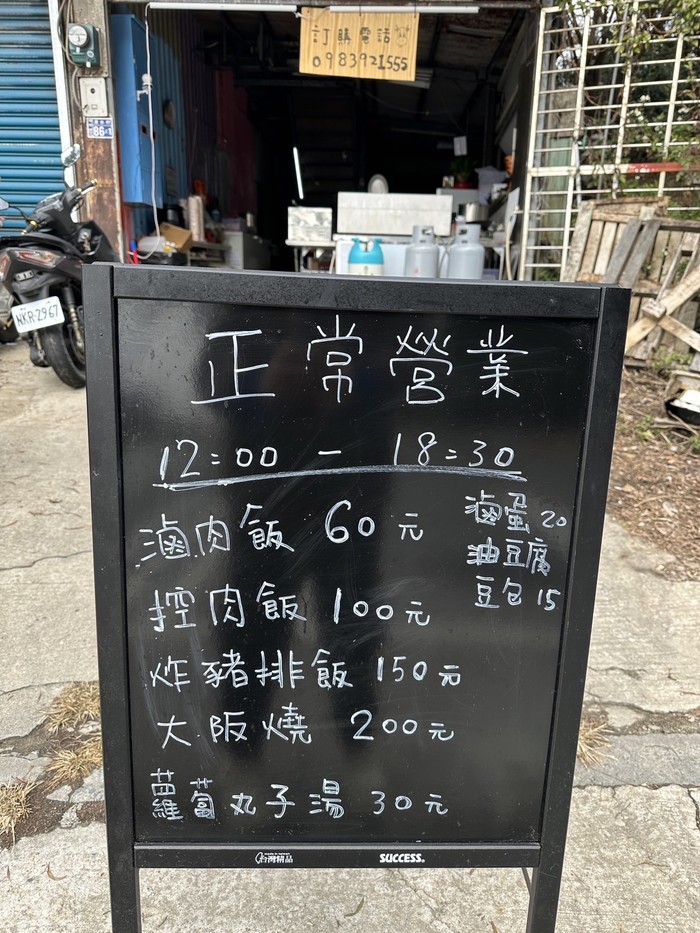 訂購電話
0983921555
86-1
NKR-2967
正常營業
12:00 - 18:30
滷肉飯 60元
控肉飯 100元
炸豬排飯 150元
大阪燒 200元
蘿蔔丸子湯 30元
滷蛋 20
油豆腐
豆包 15
台灣精品
SUCCESS®